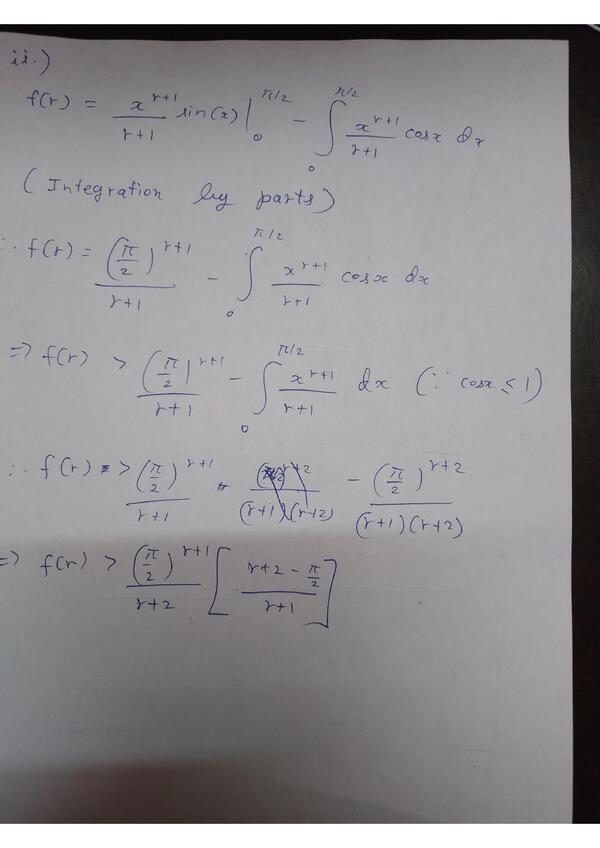 ii.)
f(r) = x^{r+1}/(r+1) sin(x) |_0^{π/2} - ∫_0^{π/2} x^{r+1}/(r+1) cosx dx
(Integration by parts)
∴ f(r) = (π/2)^{r+1}/(r+1) - ∫_0^{π/2} x^{r+1}/(r+1) cosx dx
=> f(r) > (π/2)^{r+1}/(r+1) - ∫_0^{π/2} x^{r+1}/(r+1) dx (∵ cosx ≤ 1)
∴ f(r) > (π/2)^{r+1}/(r+1) - (π/2)^{r+2}/((r+1)(r+2))
=> f(r) > (π/2)^{r+1}/(r+2) [ (r+2-π/2)/(r+1) ]